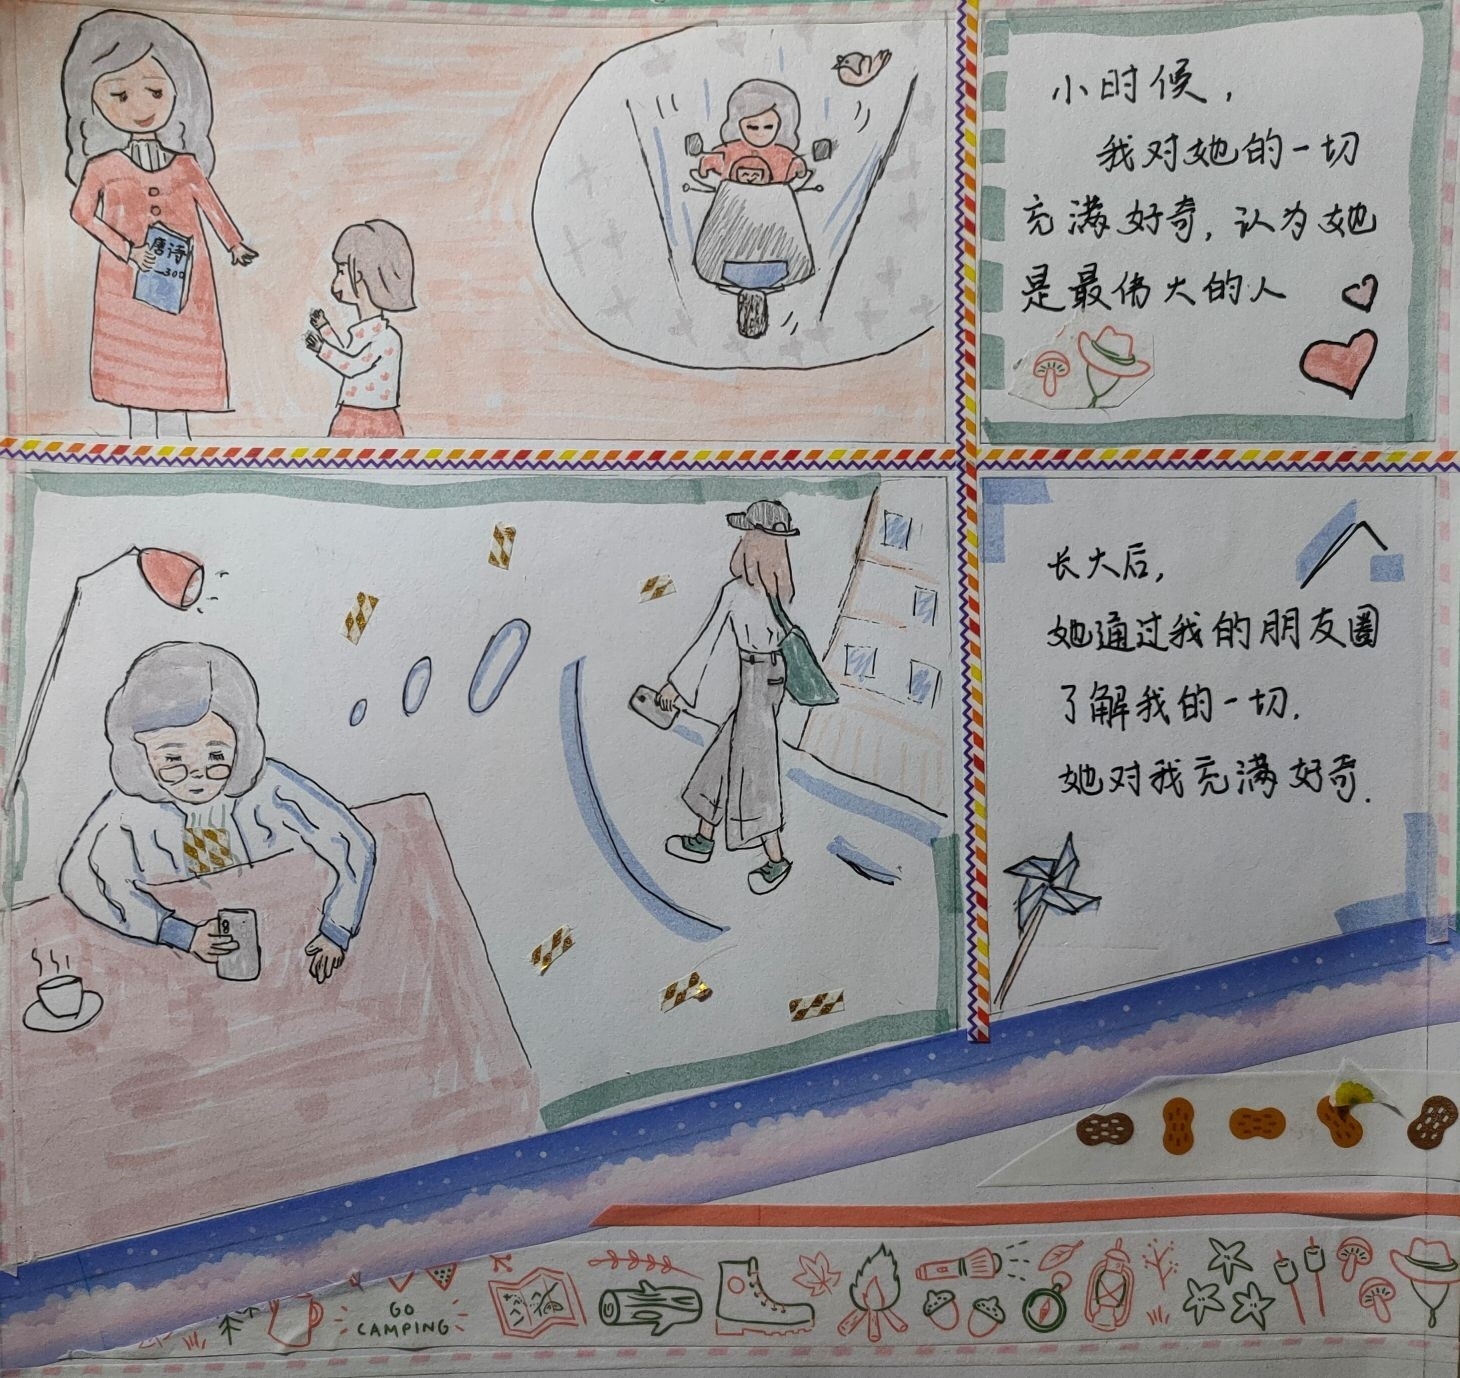 唐诗
300
小时候，
我对她的一切
充满好奇，认为她
是最伟大的人
长大后，
她通过我的朋友圈
了解我的一切．
她对我充满好奇．
GO
CAMPING